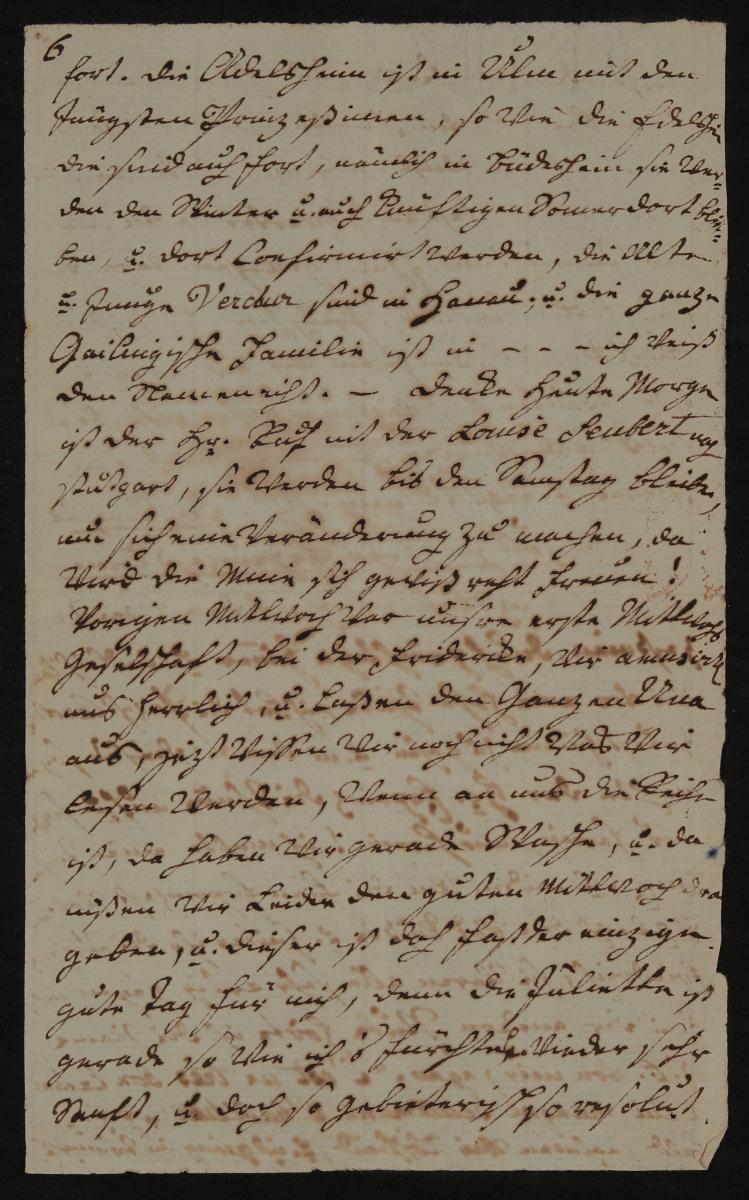 6
fort. die Adelsheim ist in Ulm mit den
Jüngsten Prinzeßinnen, so wie die Edelsheim
die sind auch fort, nämlich in Büdesheim sie wer-
den den Winter u. auch künftigen Somer dort blei-
ben, u. dort Confirmirt werden, die Alte
u. junge Verdur sind in Hanau, u. die ganze
Gailingische Familie ist in - - - ich weiß
den Namen nicht. - denke heute Morgen
ist der Hr. mit der Louise Seubert nach
Stutgart, sie werden bis den Samstag bleiben,
um sich eine Veränderung zu machen, da
wird die Mine sich gewiß recht freuen!
Vorigen Mittwoch war unsre erste Mittwochs
Geselschaft, bei der Fridericke, wir amusirten
uns herrlich, u. laßen den Ganzen
aus, jezt wissen wir noch nicht was wir
lesen werden, wenn an uns die Reihe
ist, da haben wir gerade Wasche, u. da
müßen wir leider den guten Mittwoch dran
geben, u. dieser ist doch fast der einzige
gute Tag für mich, denn die Juliette ist
gerade so wie ich's fürchtete wieder sehr
Sanft, u. doch so gebieterisch so resolut